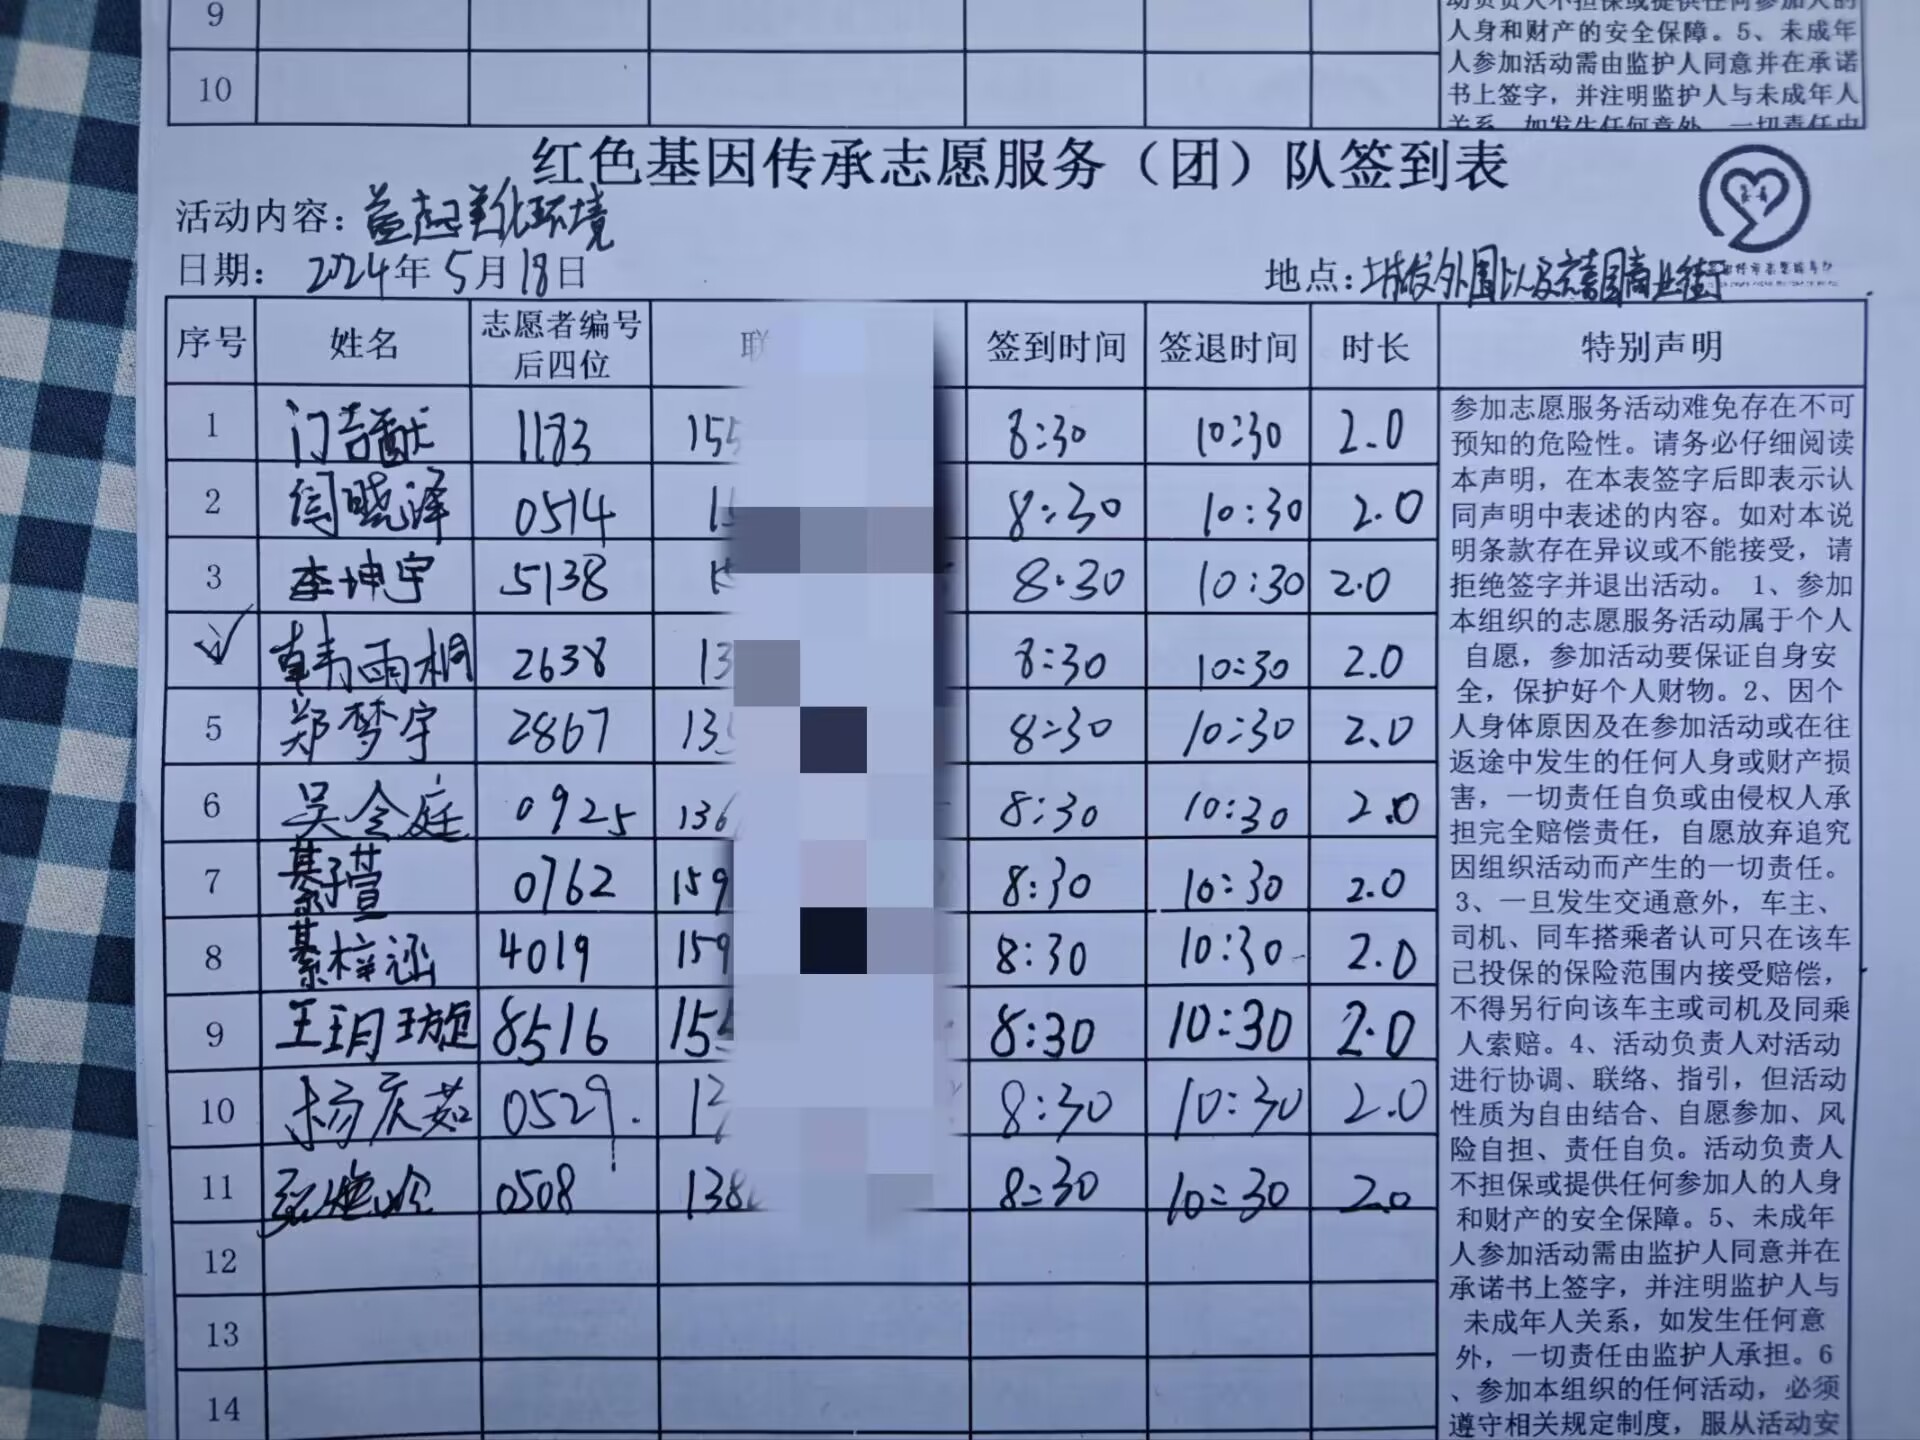 9
10
动负责人不担保或提供任何参加人的
人身和财产的安全保障。5、未成年
人参加活动需由监护人同意并在承诺
书上签字，并注明监护人与未成年人
关系，如发生任何意外，一切责任由
红色基因传承志愿服务（团）队签到表
活动内容：益起美化环境
日期： 2024年 5月18日
地点：城发外围以及商业街
序号 姓名 志愿者编号后四位 联 签到时间 签退时间 时长 特别声明
1 门吉 1183 155 8:30 10:30 2.0
2 闫晓泽 0514 15 8:30 10:30 2.0
3 李坤宇 5138 15 8:30 10:30 2.0
韩雨桐 2638 13 8:30 10:30 2.0
5 郑梦宇 2867 135 8:30 10:30 2.0
6 吴令庭 0925 136 8:30 10:30 2.0
7 綦子萱 0762 159 8:30 10:30 2.0
8 綦梓涵 4019 159 8:30 10:30 2.0
9 王玥璇 8516 155 8:30 10:30 2.0
10 杨庆茹 0529. 8:30 10:30 2.0
11 0508 138 8:30 10:30 2.0
12
13
14
参加志愿服务活动难免存在不可
预知的危险性。请务必仔细阅读
本声明，在本表签字后即表示认
同声明中表述的内容。如对本说
明条款存在异议或不能接受，请
拒绝签字并退出活动。 1、参加
本组织的志愿服务活动属于个人
自愿，参加活动要保证自身安
全，保护好个人财物。2、因个
人身体原因及在参加活动或在往
返途中发生的任何人身或财产损
害，一切责任自负或由侵权人承
担完全赔偿责任，自愿放弃追究
因组织活动而产生的一切责任。
3、一旦发生交通意外，车主、
司机、同车搭乘者认可只在该车
已投保的保险范围内接受赔偿，
不得另行向该车主或司机及同乘
人索赔。4、活动负责人对活动
进行协调、联络、指引，但活动
性质为自由结合、自愿参加、风
险自担、责任自负。活动负责人
不担保或提供任何参加人的人身
和财产的安全保障。5、未成年
人参加活动需由监护人同意并在
承诺书上签字，并注明监护人与
未成年人关系，如发生任何意
外，一切责任由监护人承担。6
、参加本组织的任何活动，必须
遵守相关规定制度，服从活动安